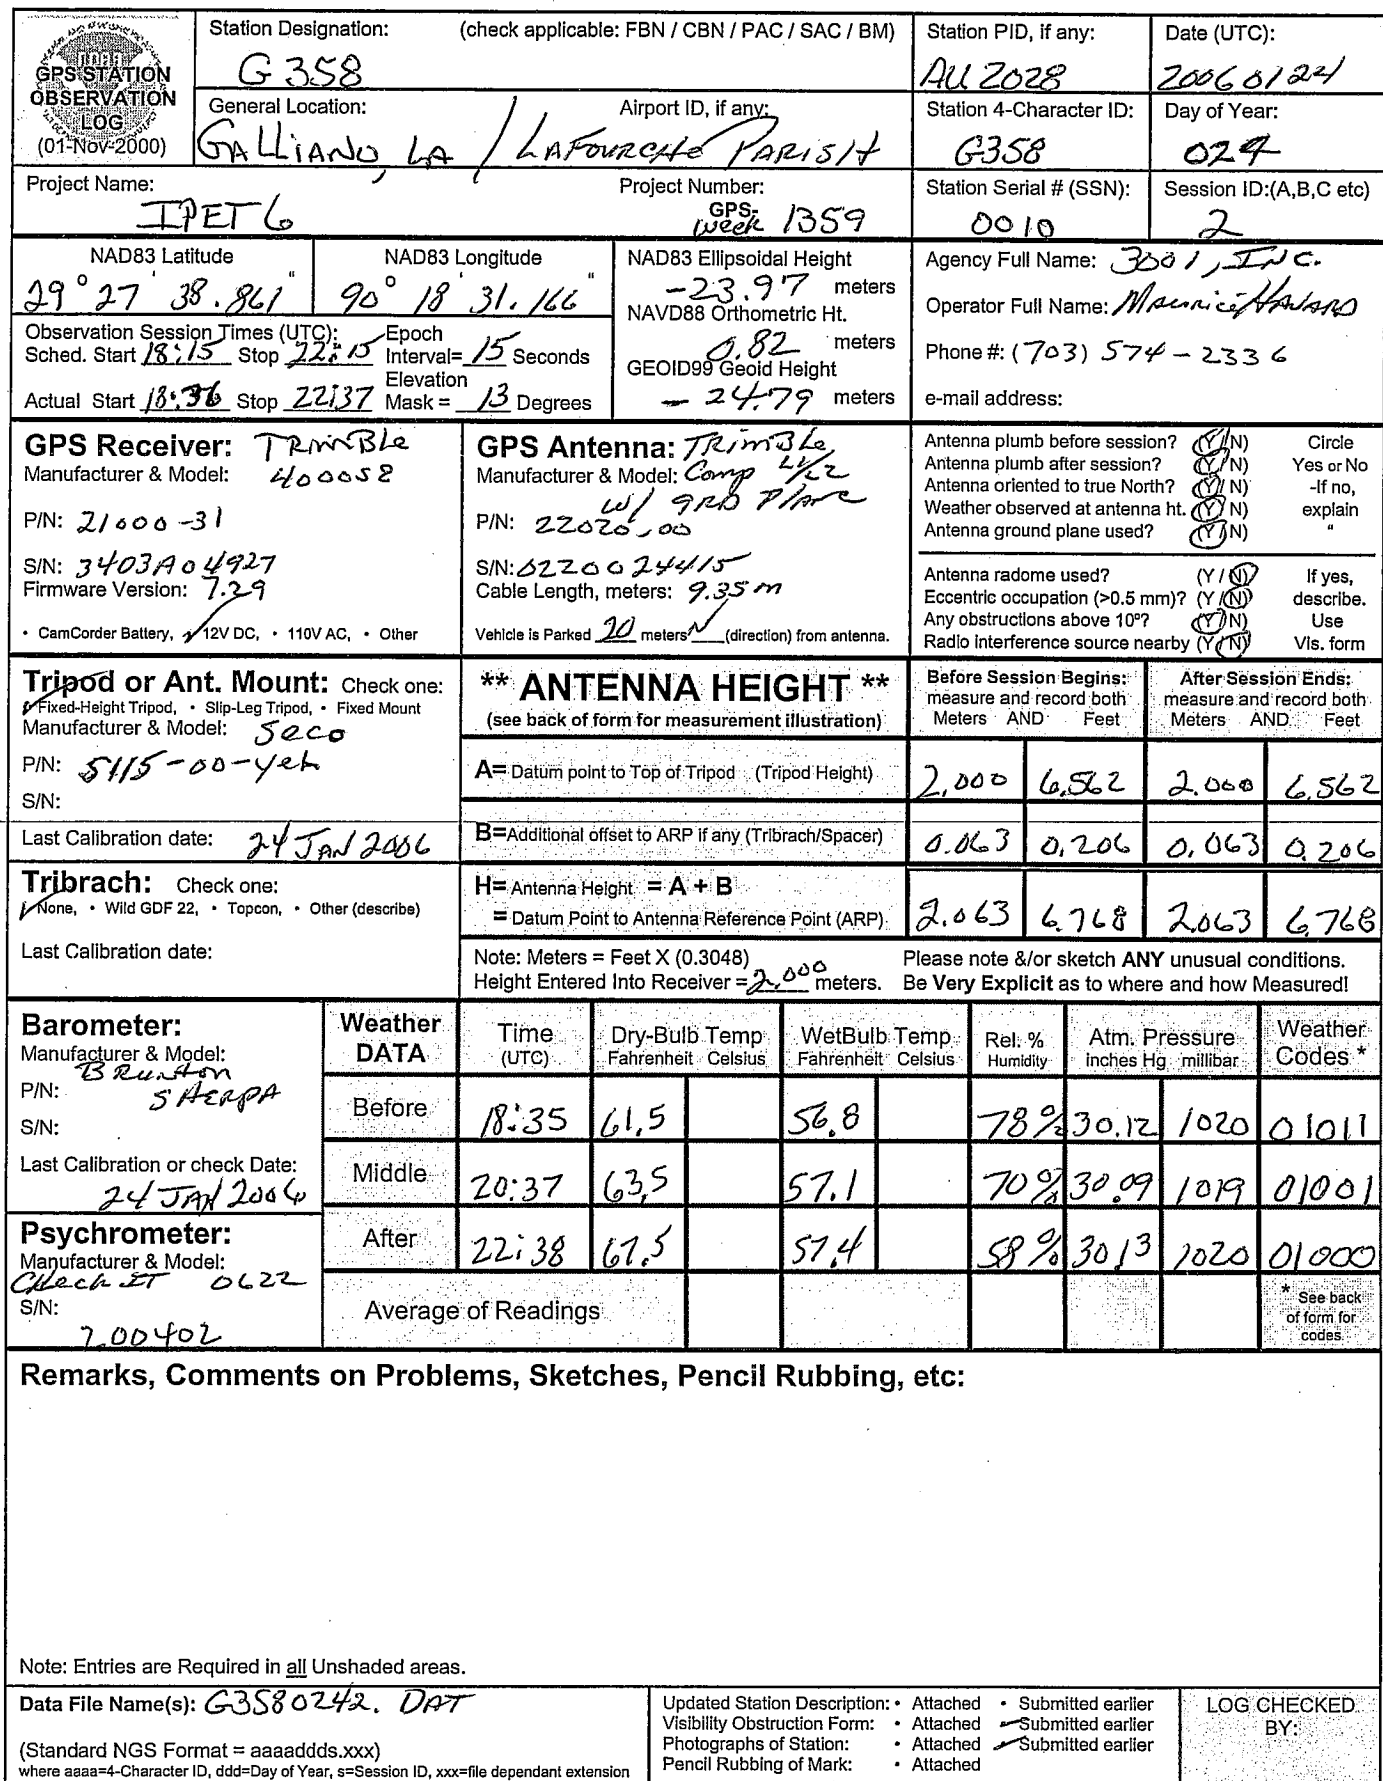 GPS STATION OBSERVATION LOG (01-Nov-2000)
Station Designation: (check applicable: FBN / CBN / PAC / SAC / BM)
G 358
Station PID, if any:
AU 2028
Date (UTC):
20060124
General Location: Airport ID, if any:
GALLIANO, LA / LAFOURCHE PARISH
Station 4-Character ID:
G358
Day of Year:
024
Project Name:
IPET 6
Project Number:
GPS-
week 1359
Station Serial # (SSN):
0010
Session ID:(A,B,C etc)
2
NAD83 Latitude
29 ° 27 ' 38.861 "
NAD83 Longitude
90 ° 18 ' 31.166 "
NAD83 Ellipsoidal Height
-23.97 meters
NAVD88 Orthometric Ht.
0.82 meters
GEOID99 Geoid Height
- 24.79 meters
Agency Full Name: 3001, INC.
Operator Full Name: Maurice
Phone #: (703) 574-2336
e-mail address:
Observation Session Times (UTC):
Sched. Start 18:15 Stop 22:15
Actual Start 18:36 Stop 22:37
Epoch
Interval= 15 Seconds
Elevation
Mask = 13 Degrees
GPS Receiver: TRIMBLE
Manufacturer & Model: 4000S8
P/N: 21000-31
S/N: 3403A04927
Firmware Version: 7.29
• CamCorder Battery, ✓ 12V DC, • 110V AC, • Other
GPS Antenna: TRIMBLE
Manufacturer & Model: Comp L1/L2
W/ GRD Plane
P/N: 22020-00
S/N: 0220024415
Cable Length, meters: 9.35 m
Vehicle is Parked 20 meters N (direction) from antenna.
Antenna plumb before session? (Y/N) Circle
Antenna plumb after session? (Y/N) Yes or No
Antenna oriented to true North? (Y/N) -If no,
Weather observed at antenna ht. (Y/N) explain
Antenna ground plane used? (Y/N) "
Antenna radome used? (Y/N) If yes,
Eccentric occupation (>0.5 mm)? (Y/N) describe.
Any obstructions above 10°? (Y/N) Use
Radio interference source nearby (Y/N) Vis. form
Tripod or Ant. Mount: Check one:
✓ Fixed-Height Tripod, • Slip-Leg Tripod, • Fixed Mount
Manufacturer & Model: Seco
P/N: 5115-00-yel
S/N:
Last Calibration date: 24 JAN 2006
Tribrach: Check one:
✓ None, • Wild GDF 22, • Topcon, • Other (describe)
Last Calibration date:
** ANTENNA HEIGHT **
(see back of form for measurement illustration)
Before Session Begins:
measure and record both
Meters AND Feet
After Session Ends:
measure and record both
Meters AND Feet
A= Datum point to Top of Tripod (Tripod Height) 2.000 6.562 2.000 6.562
B=Additional offset to ARP if any (Tribrach/Spacer) 0.063 0.206 0.063 0.206
H= Antenna Height = A + B
= Datum Point to Antenna Reference Point (ARP) 2.063 6.768 2.063 6.768
Note: Meters = Feet X (0.3048)
Height Entered Into Receiver = 2.000 meters.
Please note &/or sketch ANY unusual conditions.
Be Very Explicit as to where and how Measured!
Barometer:
Manufacturer & Model:
BRUNTON
P/N: SHERPA
S/N:
Last Calibration or check Date:
24 JAN 2006
Psychrometer:
Manufacturer & Model:
Check IT 0622
S/N:
200402
Weather DATA Time (UTC) Dry-Bulb Temp Fahrenheit Celsius WetBulb Temp Fahrenheit Celsius Rel. % Humidity Atm. Pressure inches Hg millibar Weather Codes *
Before 18:35 61.5 56.8 78% 30.12 1020 01011
Middle 20:37 63.5 57.1 70% 30.09 1019 01001
After 22:38 67.5 57.4 58% 30.13 1020 01000
Average of Readings
* See back of form for codes.
Remarks, Comments on Problems, Sketches, Pencil Rubbing, etc:
Note: Entries are Required in all Unshaded areas.
Data File Name(s): G3580242. DAT
(Standard NGS Format = aaaaddds.xxx)
where aaaa=4-Character ID, ddd=Day of Year, s=Session ID, xxx=file dependant extension
Updated Station Description: • Attached • Submitted earlier
Visibility Obstruction Form: • Attached ✓ Submitted earlier
Photographs of Station: • Attached ✓ Submitted earlier
Pencil Rubbing of Mark: • Attached
LOG CHECKED BY: